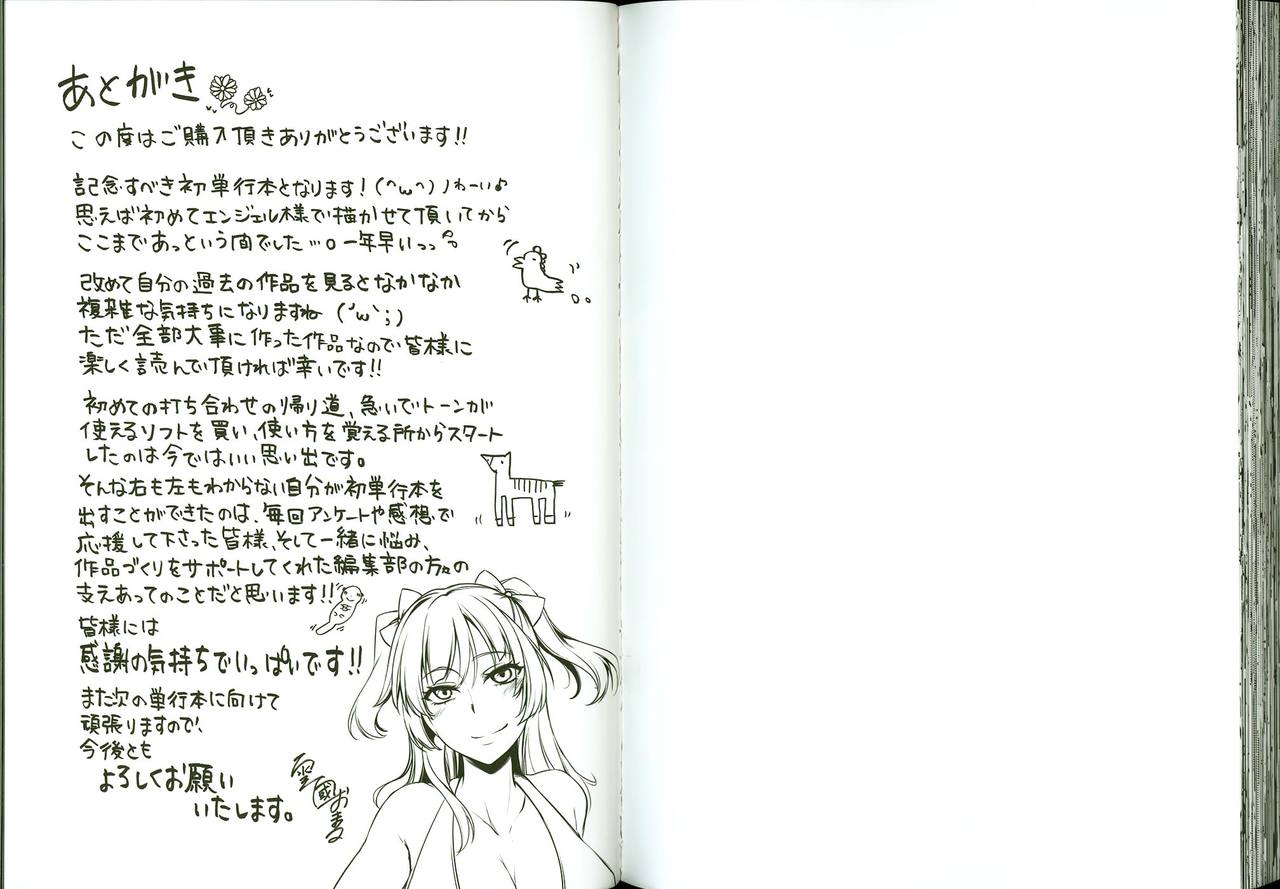 あとがき
この度はご購入頂きありがとうございます!!
記念すべき初単行本となります!(^ω^)ノわーい♪
思えば初めてエンジェル様で描かせて頂いてから
ここまであっという間でした…。一年早いっっ
改めて自分の過去の作品を見るとなかなか
複雑な気持ちになりますね (´ω`;)
ただ全部大事に作った作品なので皆様に
楽しく読んで頂ければ幸いです!!
初めての打ち合わせの帰り道、急いでトーンが
使えるソフトを買い、使い方を覚える所からスタート
したのは今ではいい思い出です。
そんな右も左もわからない自分が初単行本を
出すことができたのは、毎回アンケートや感想で
応援して下さった皆様、そして一緒に悩み、
作品づくりをサポートしてくれた編集部の方々の
支えあってのことだと思います!!
皆様には
感謝の気持ちでいっぱいです!!
また次の単行本に向けて
頑張りますので、
今後とも
よろしくお願い
いたします。